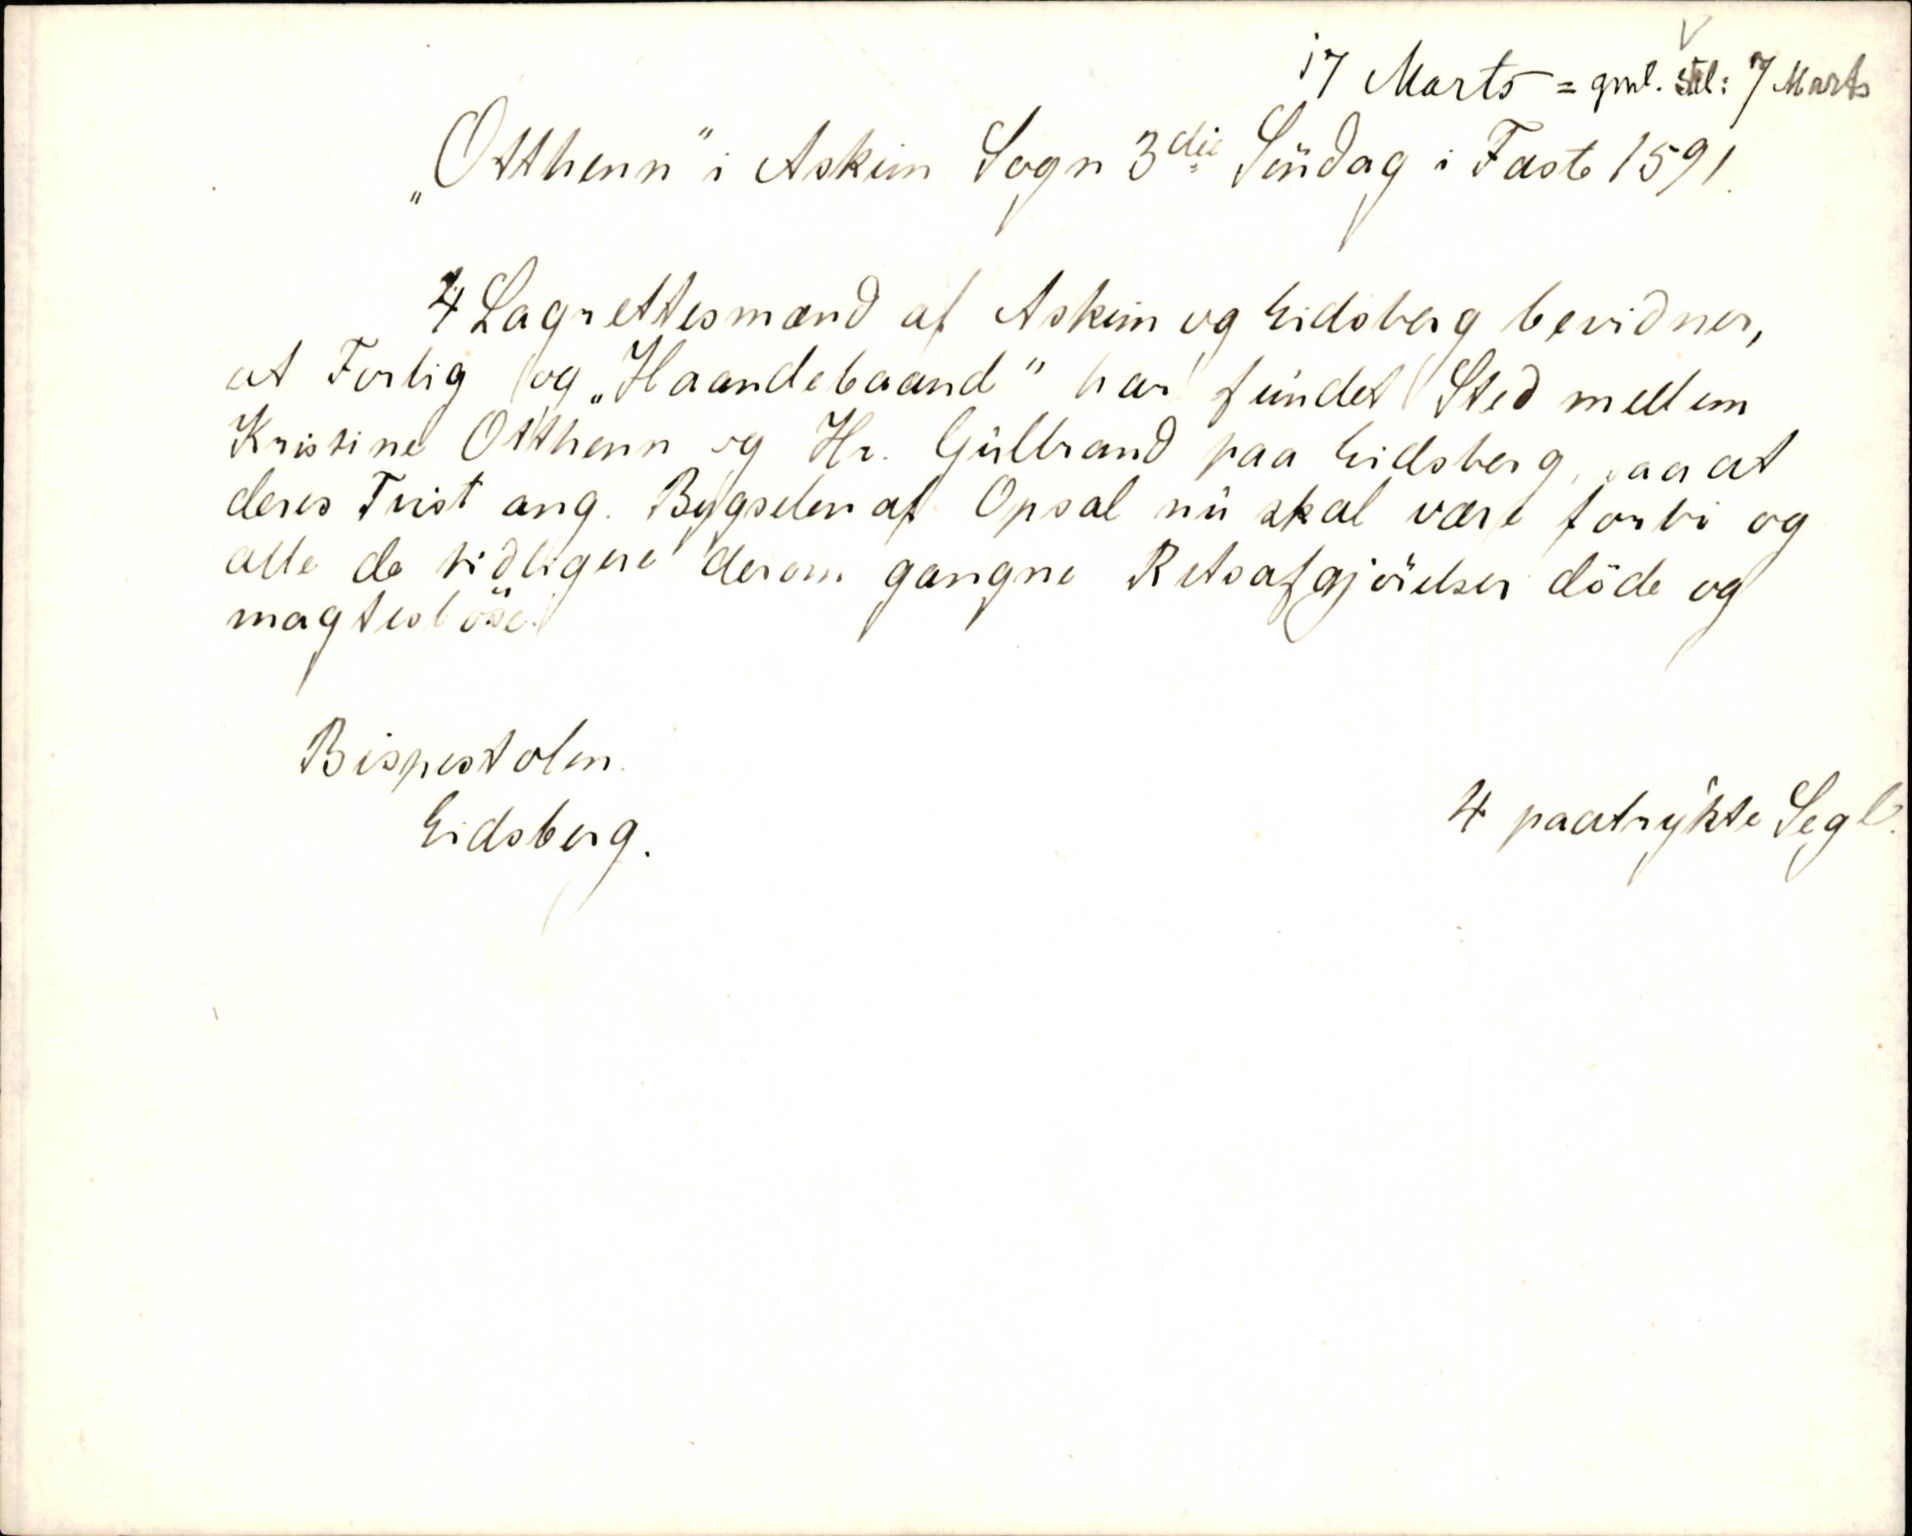 17 Marts = gml. Stil: 7 Marts
„Otthenn" i Askim Sogn 3die Søndag i Faste 1591.
4 Lagrettesmænd af Askim og Eidsberg bevidner,
at Forlig og „Haandebaand" har fundet Sted mellem
Kristine Otthenn og Hr. Gulbrand paa Eidsberg, saa at
deres Tvist ang. Bygselen af Opsal nu skal være forbi og
alle de tidligere derom gangne Retsafgjörelser döde og
magteslöse.
Bispestolen.
Eidsberg.
4 paatrykte Segl.